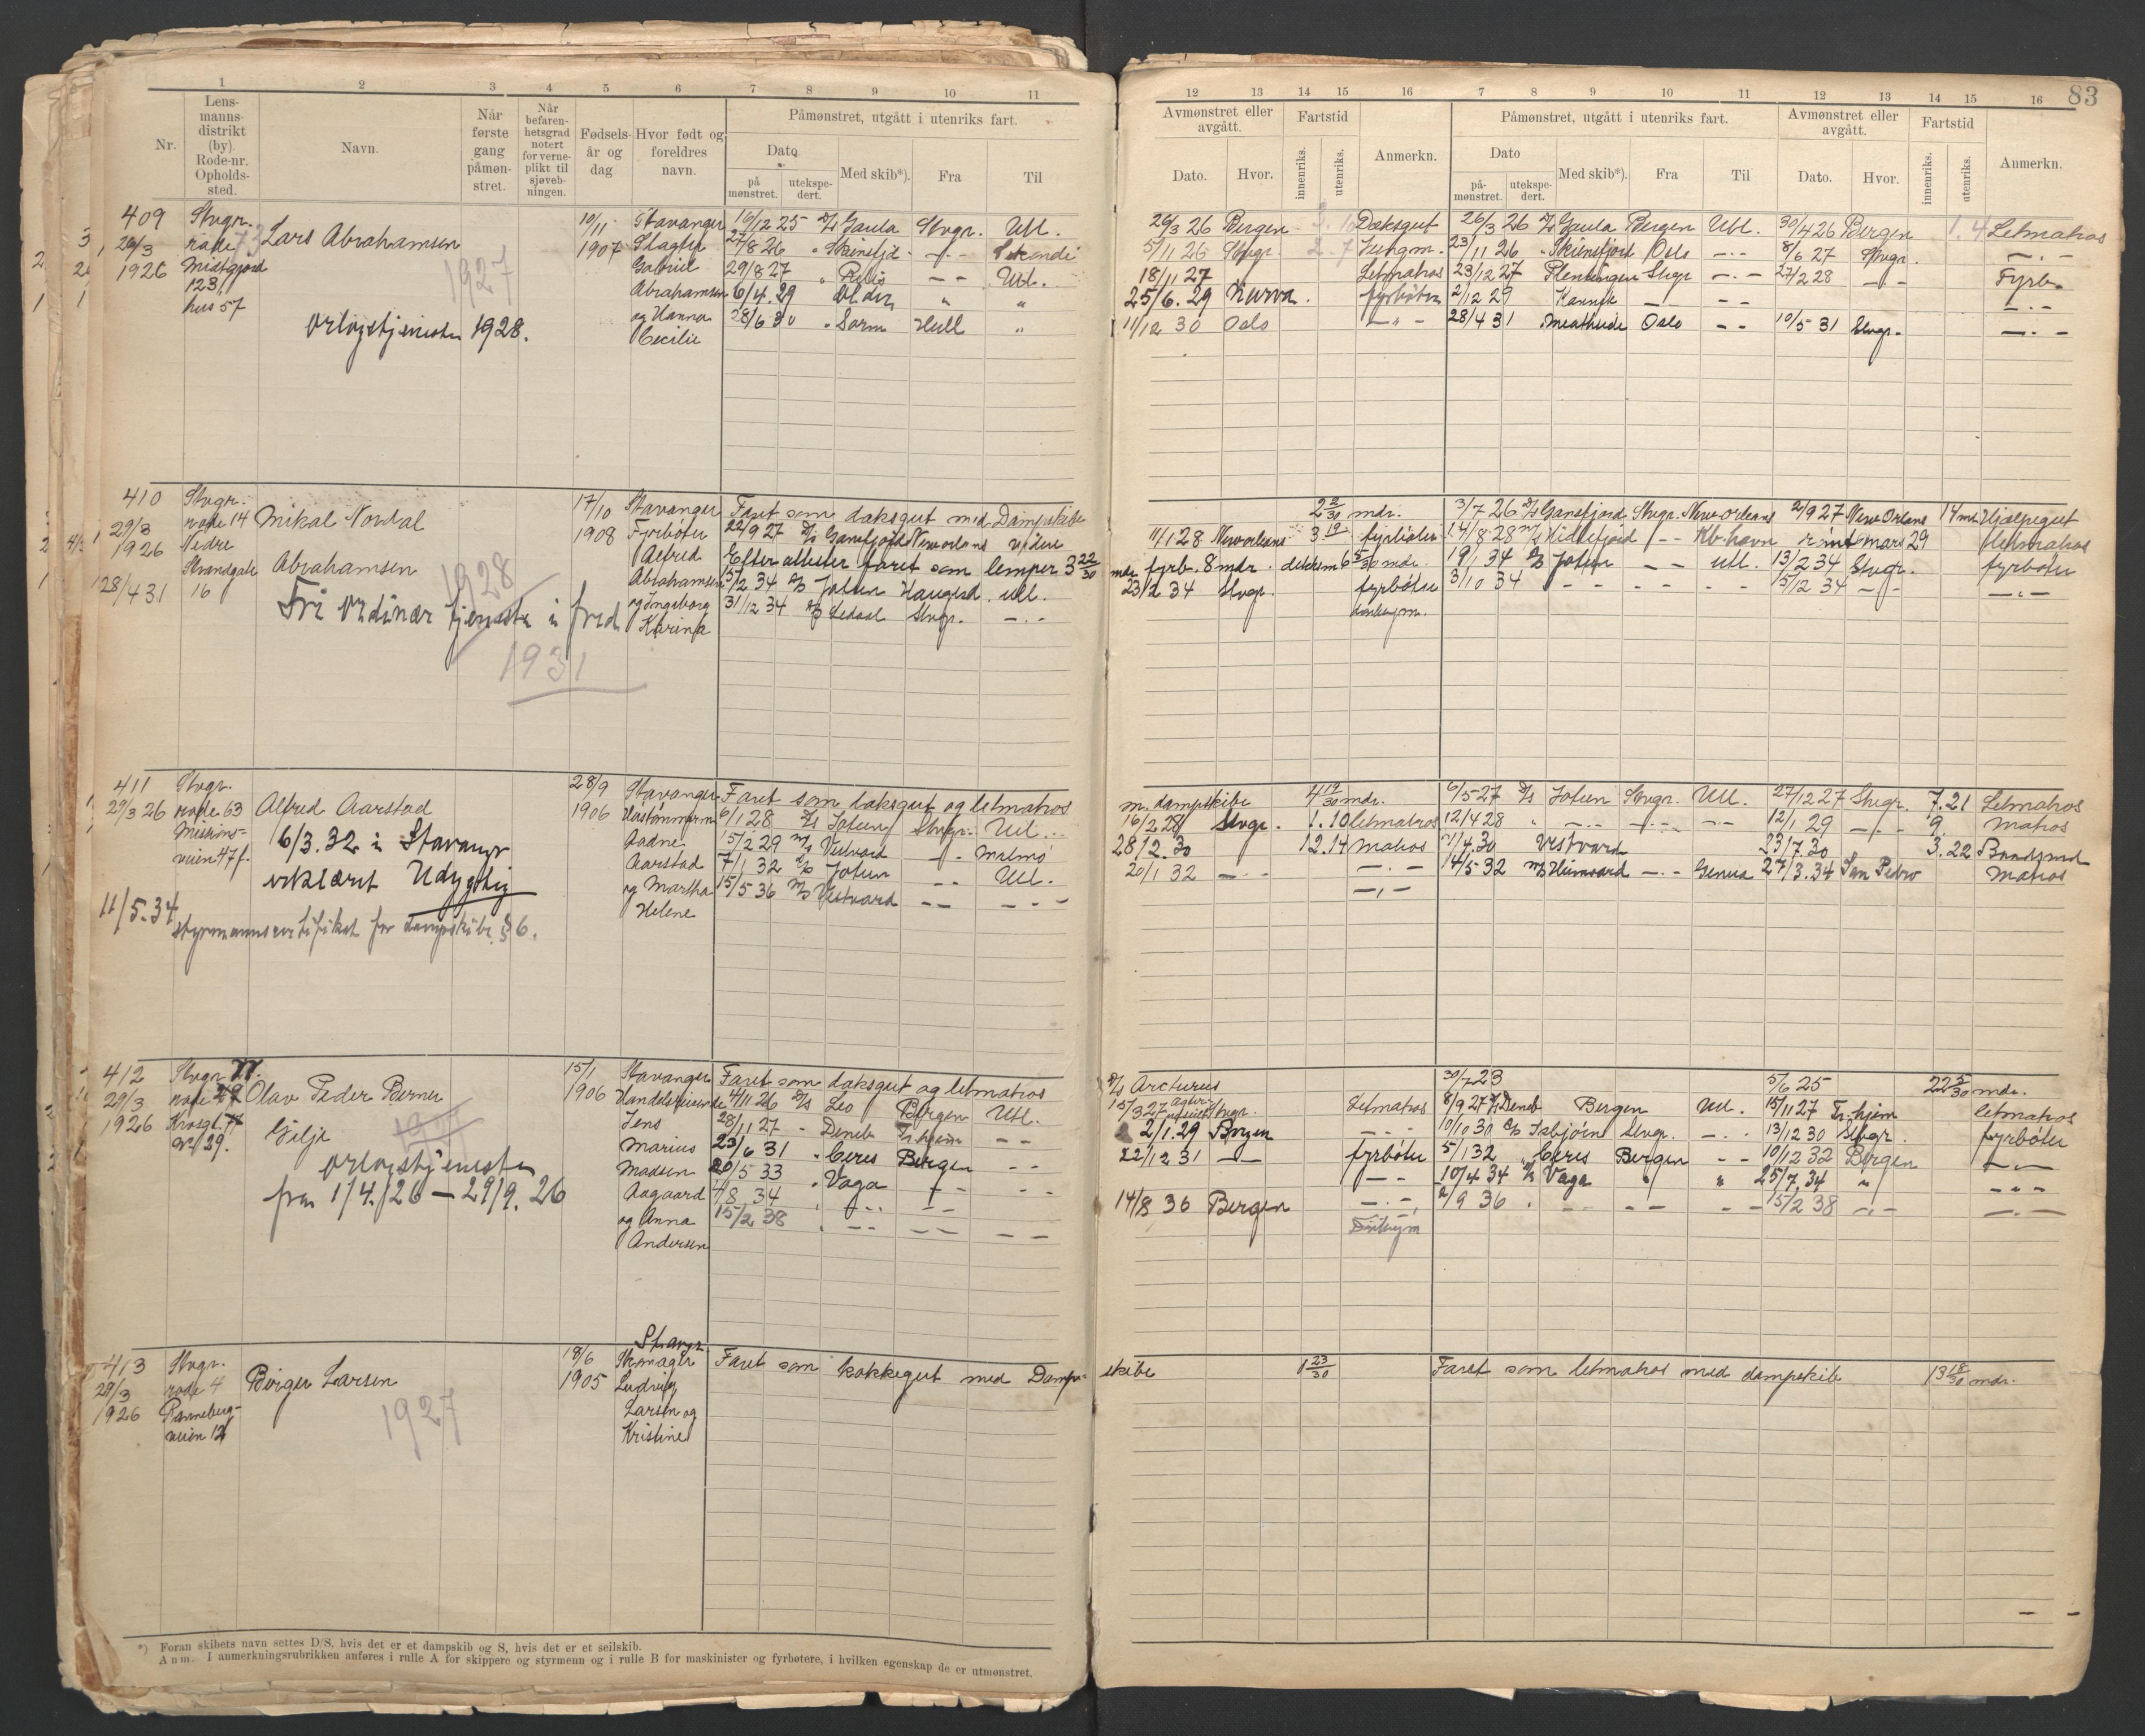 83
1 2 3 4 5 6 7 8 9 10 11
Nr.
Lens-
manns-
distrikt
(by).
Rode-nr.
Opholds-
sted.
Navn.
Når
første
gang
påmøn-
stret.
Når
befaren-
hetsgrad
notert
for verne-
plikt til
sjøveb-
ningen.
Fødsels-
år og
dag
Hvor født og
foreldres
navn.
Påmønstret, utgått i utenriks fart.
Dato
på
mønstret.
utekspe-
dert.
Med skib*).
Fra
Til
12 13 14 15 16 7 8 9 10 11 12 13 14 15 16
Avmønstret eller
avgått.
Dato.
Hvor.
Fartstid
innenriks.
utenriks.
Anmerkn.
Påmønstret, utgått i utenriks fart.
Dato
på-
mønstret.
utekspe-
dert.
Med skib*).
Fra
Til
Avmønstret eller
avgått.
Dato.
Hvor.
Fartstid
innenriks.
utenriks.
Anmerkn.
409
29/3
1926
Stvgr.
rode
Midtgjord
123
hus 57
Lars Abrahamsen
1927
Orlogstjeneste 1928.
10/11
1907
Stavanger
Slagter
Gabriel
Abrahamsen
og Hanna
Cecilie
16/12 25 D/S Gaula Stvgr. Utl.
27/8 26 " Skiensfjd -"-
29/8 27 - - Utl.
6/4 29 " "
28/6 30 " Sorm Hull "
26/3 26 Bergen Dæksgut 26/3 26 D/S Gaula Bergen Utl. 30/4 26 Bergen 1. 4 Letmatros
5/11 26 Stvgr. 2. 7 Jungm. 23/11 26 " Skiensfjord Oslo -"- 8/6 27 Stvgr. -"-
18/11 27 Letmatros 23/12 27 Stvgr -"- 27/2 28 -"- Fyrb.
25/6. 29 Narva. fyrbøter 2/12 29 Kannik - - -"-
11/12 30 Oslo -"- 28/4 31 Oslo - - 10/5 31 Stvgr. -"-
410
29/3
1926
28/4 31
Stvgr.
rode 14
Nedre
Strandgate
16
Mikal Nordal
Abrahamsen
1928
Fri ordinær tjeneste i fred
1931
17/10
1908
Stavanger
Fyrbøter
Alfred
Abrahamsen
og Ingeborg
Karina
Faret som dæksgut med Dampskibe
22/9 27 D/S Gansfjord New orleans videre
Efter attester faret som lemper 3 22/30
15/2 34 D/S Jotun Haugesd. utl.
31/12 34 D/S Ledaal Stvgr. -"-
2 2/30 mdr. 3/7 26 D/S Gansfjord Stvgr. New orleans 2/9 27 New Orleans 14 md Hjælpegut
11/1 28 New orleans 3 19 fyrbøter 14/8 28 M/S Hidlefjord - - Kb.havn mars 29 Letmatros
mdr fyrb. 8 mdr. dekkem 6 5/30 mdr. 19/1 34 D/S Jotun - - utl. 13/2 34 Stvgr. fyrbøter
23/2 34 Stvgr. fyrbøter 3/10 34 - - - - 15/12 34 -"- -"-
411
29/3 26
Stvgr.
rode 63
Misions-
veien 47 f.
Alfred Aarstad
6/3. 32 i Stavanger
erklært Udygtig
11/5. 34 styrmannssertifikat for dampskibe § 6.
28/9
1906
Stavanger
Hustømmerm
Aadne
Aarstad
og Martha
Helene
Faret som dæksgut og letmatros
6/1 28 D/S Jotun Stvgr. Utl.
15/2 29 M/S Vestvard -"- Malmø
7/1 32 D/S Jotun - - Utl.
15/5 36 M/S Vestvard - - -"-
m. dampskibe 4 19/30 mdr. 6/5 27 D/S Jotun Stvgr. Utl. 27/12 27 Stvgr. 7. 21 Letmatros
16/2 28 Stvgr. 1. 10 letmatros 12/4 28 " -"- -"- -"- 12/1 29 -"- 9. Matros
28/2. 30 12. 14 Matros 7/4. 30 Vestvard 23/7. 30 3. 22 Baadsmd
20/1 32 -"- -"- 14/5 32 M/S Heimvard -"- Genua 27/3. 34 San Pedro Matros
-"-
412
29/3
1926
Stvgr.
77.
rode 49
Krosgt.
Nr/ 39.
Olav Peder Berner
Gilje
1927
Orlogstjeneste
fra 1/4. /26 - 29/9. 26
15/1
1906
Stavanger
Handelsreisende
Jens
Marius
Madsen
Aagaard
og Anna
Andersen
Faret som dæksgut og letmatros
4/11 26 D/S Leo Bergen Utl.
28/11 27 - Deneb Tr.hjem - -
23/6 31 " Ceres Bergen
20/5 33 " Vaga - -
7/8 34 " -"- - -
15/2 38 " - - - - - -
D/S Arcturus 30/7 23 5/6 25 22 5/30 mdr.
15/3 27 Stvgr. Letmatros 8/9 27 D/S Deneb Bergen Utl. 15/11 27 Tr.hjem letmatros
2/1. 29 Bergen -"- 10/10 30 D/S Isbjørn Stvgr. -"- 13/12 30 Stvgr. fyrbøter
22/12 31 - - fyrbøter 5/1 32 " Ceres Bergen - - 10/12 32 Bergen -"-
- - 10/4 34 D/S Vaga " " 25/7. 34 " -"-
14/8 36 Bergen -"- 2/9 36 " - - - - - 15/2 38 -"- -"-
413
29/3
1926
Stvgr.
rode 4
Panneberg-
veien 12
Birger Larsen
1927
18/6
1905
Stavgr.
Skomager
Ludvig
Larsen og
Kristine
Faret som kokkegut med Damp-
skibe 1 23/30 Faret som letmatros med dampskibe 13 18/30 mdr.
*) Foran skibets navn settes D/S, hvis det er et dampskib og S, hvis det er et seilskib.
Anm. I anmerkningsrubrikken anføres i rulle A for skippere og styrmenn og i rulle B for maskinister og fyrbøtere, i hvilken egenskap de er utmønstret.